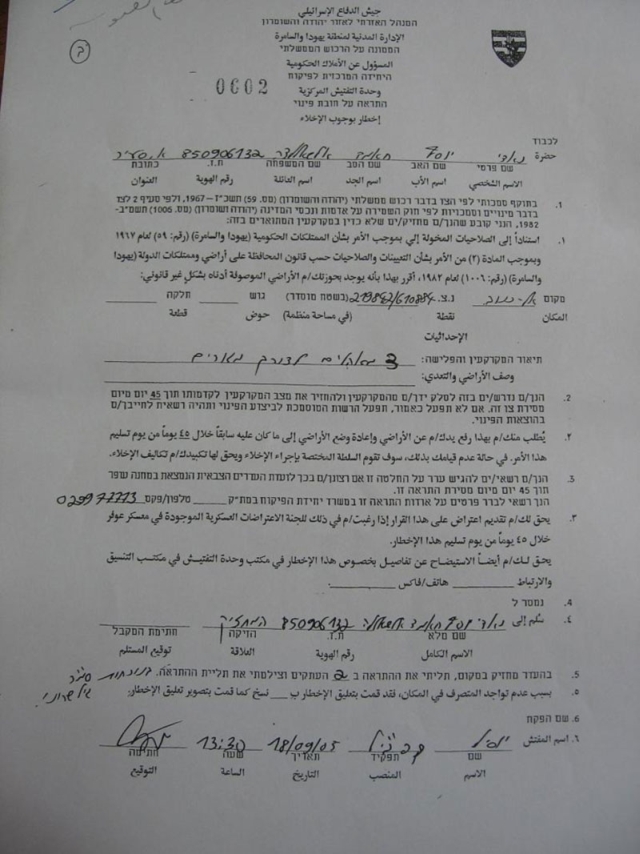 צבא ההגנה לישראל
המנהל האזרחי לאזור יהודה והשומרון
الإدارة المدنية لمنطقة يهودا والسامرة
הממונה על הרכוש הממשלתי
المسؤول عن الأملاك الحكومية
היחידה המרכזית לפיקוח
وحدة التفتيش المركزية
0602
התראה על חובת פינוי
إخطار بوجوب الإخلاء
לכבוד
حضرة 850906132
שם פרטי שם האב שם הסב שם המשפחה ת.ז. כתובת
الاسم الشخصي اسم الأب اسم الجد اسم العائلة رقم الهوية العنوان
1. בתוקף סמכותי לפי הצו בדבר רכוש ממשלתי (יהודה והשומרון) (מס. 59) תשכ"ז-1967, ולפי סעיף 2 לצו
בדבר מינויים וסמכויות לפי חוק השמירה על אדמות ונכסי המדינה (יהודה ושומרון) (מס. 1006) תשמ"ב-
1982, הנני קובע שהנך/ם מחזיק/ים שלא כדין במקרקעין המתוארים בזה:
١. استناداً إلى الصلاحيات المخولة إلي بموجب الأمر بشأن الممتلكات الحكومية (يهودا والسامرة) (رقم: ٥٩) لعام ١٩٦٧
وبموجب المادة (٢) من الأمر بشأن التعيينات والصلاحيات حسب قانون المحافظة على أراضي وممتلكات الدولة (يهودا
والسامرة) (رقم: ١٠٠٦) لعام ١٩٨٢، أقرر بهذا بأنه يوجد بحوزتك/م الأراضي الموصوفة أدناه بشكل غير قانوني:
מקום נ.צ. 219842/610884 (בשטח מוסדר) גוש חלקה
المكان نقطة (في مساحة منظمة) حوض قطعة
الإحداثيات
תיאור המקרקעין והפלישה: 3 מאהלים לצורך מגורים
وصف الأراضي والتعدي:
2. הנך/ם נדרש/ים בזה לסלק ידך/ם מהמקרקעין ולהחזיר את מצב המקרקעין לקדמותו תוך 45 יום מיום
מסירת צו זה. אם לא תפעל כאמור, תפעל הרשות המוסמכת לביצוע הפינוי ותהיה רשאית לחייבך/ם
בהוצאות הפינוי.
٢. يُطلب منك/م بهذا رفع يدك/م عن الأراضي وإعادة وضع الأراضي إلى ما كان عليه سابقاً خلال ٤٥ يوماً من يوم تسليم
هذا الأمر. في حالة عدم قيامك بذلك، سوف تقوم السلطة المختصة بإجراء الإخلاء ويحق لها تكبيدك/م تكاليف الإخلاء.
3. הנך/ם רשאי/ים להגיש ערר על החלטה זו אם רצונך/ם בכך לועדת העררים הצבאית הנמצאת במחנה עופר
תוך 45 יום מיום מסירת התראה זו.
הנך רשאי לברר פרטים על אודות התראה זו במשרד יחידת הפיקוח במת"ק טלפון/פקס 029977713
٣. يحق لك/م تقديم اعتراض على هذا القرار إذا رغبت/م في ذلك للجنة الاعتراضات العسكرية الموجودة في معسكر عوفر
خلال ٤٥ يوماً من يوم تسليم هذا الإخطار.
يحق لك/م أيضاً الاستيضاح عن تفاصيل بخصوص هذا الإخطار في مكتب وحدة التفتيش في مكتب التنسيق
والارتباط هاتف/فاكس
4. נמסר ל
٤. سلم إلى 850906132 המחזיק
שם מלא ת.ז. הזיקה חתימת המקבל
الاسم الكامل رقم الهوية العلاقة توقيع المستلم
5. בהעדר מחזיק במקום, תליתי את ההתראה ב 2 העתקים וצילמתי את תליית ההתראה. בנוכחות
٥. بسبب عدم تواجد المتصرف في المكان، فقد قمت بتعليق الإخطار ب نسخ كما قمت بتصوير تعليق الإخطار:
6. שם הפקח
٦. اسم المفتش 18/09/05 13:30
שם תפקיד תאריך שעה חתימה
الاسم المنصب التاريخ الساعة التوقيع